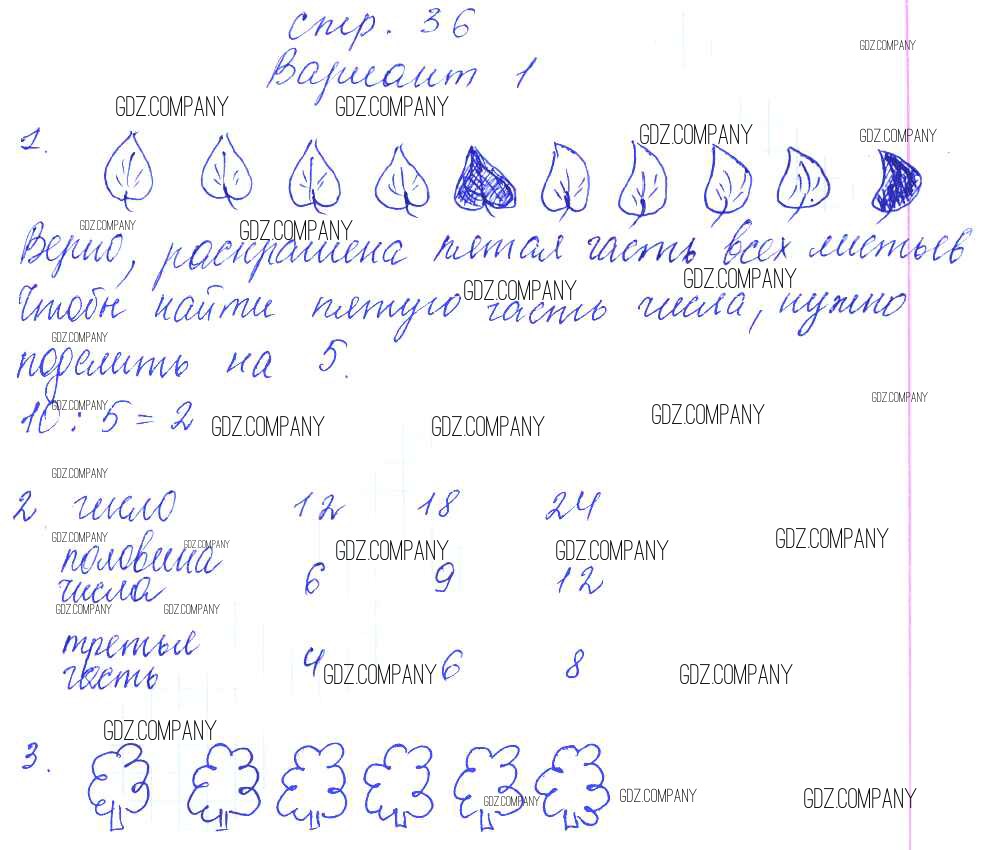 стр. 36
Вариант 1
GDZ.COMPANY
GDZ.COMPANY GDZ.COMPANY
GDZ.COMPANY GDZ.COMPANY
1.
GDZ.COMPANY GDZ.COMPANY
Верно, раскрашена пятая часть всех листьев
GDZ.COMPANY GDZ.COMPANY
Чтобы найти пятую часть числа, нужно
GDZ.COMPANY
поделить на 5.
GDZ.COMPANY GDZ.COMPANY
10 : 5 = 2
GDZ.COMPANY GDZ.COMPANY GDZ.COMPANY
GDZ.COMPANY
2 число 12 18 24
GDZ.COMPANY GDZ.COMPANY GDZ.COMPANY GDZ.COMPANY GDZ.COMPANY
половина
числа 6 9 12
GDZ.COMPANY GDZ.COMPANY
третья
часть 4 6 8
GDZ.COMPANY GDZ.COMPANY
GDZ.COMPANY
3.
GDZ.COMPANY GDZ.COMPANY GDZ.COMPANY